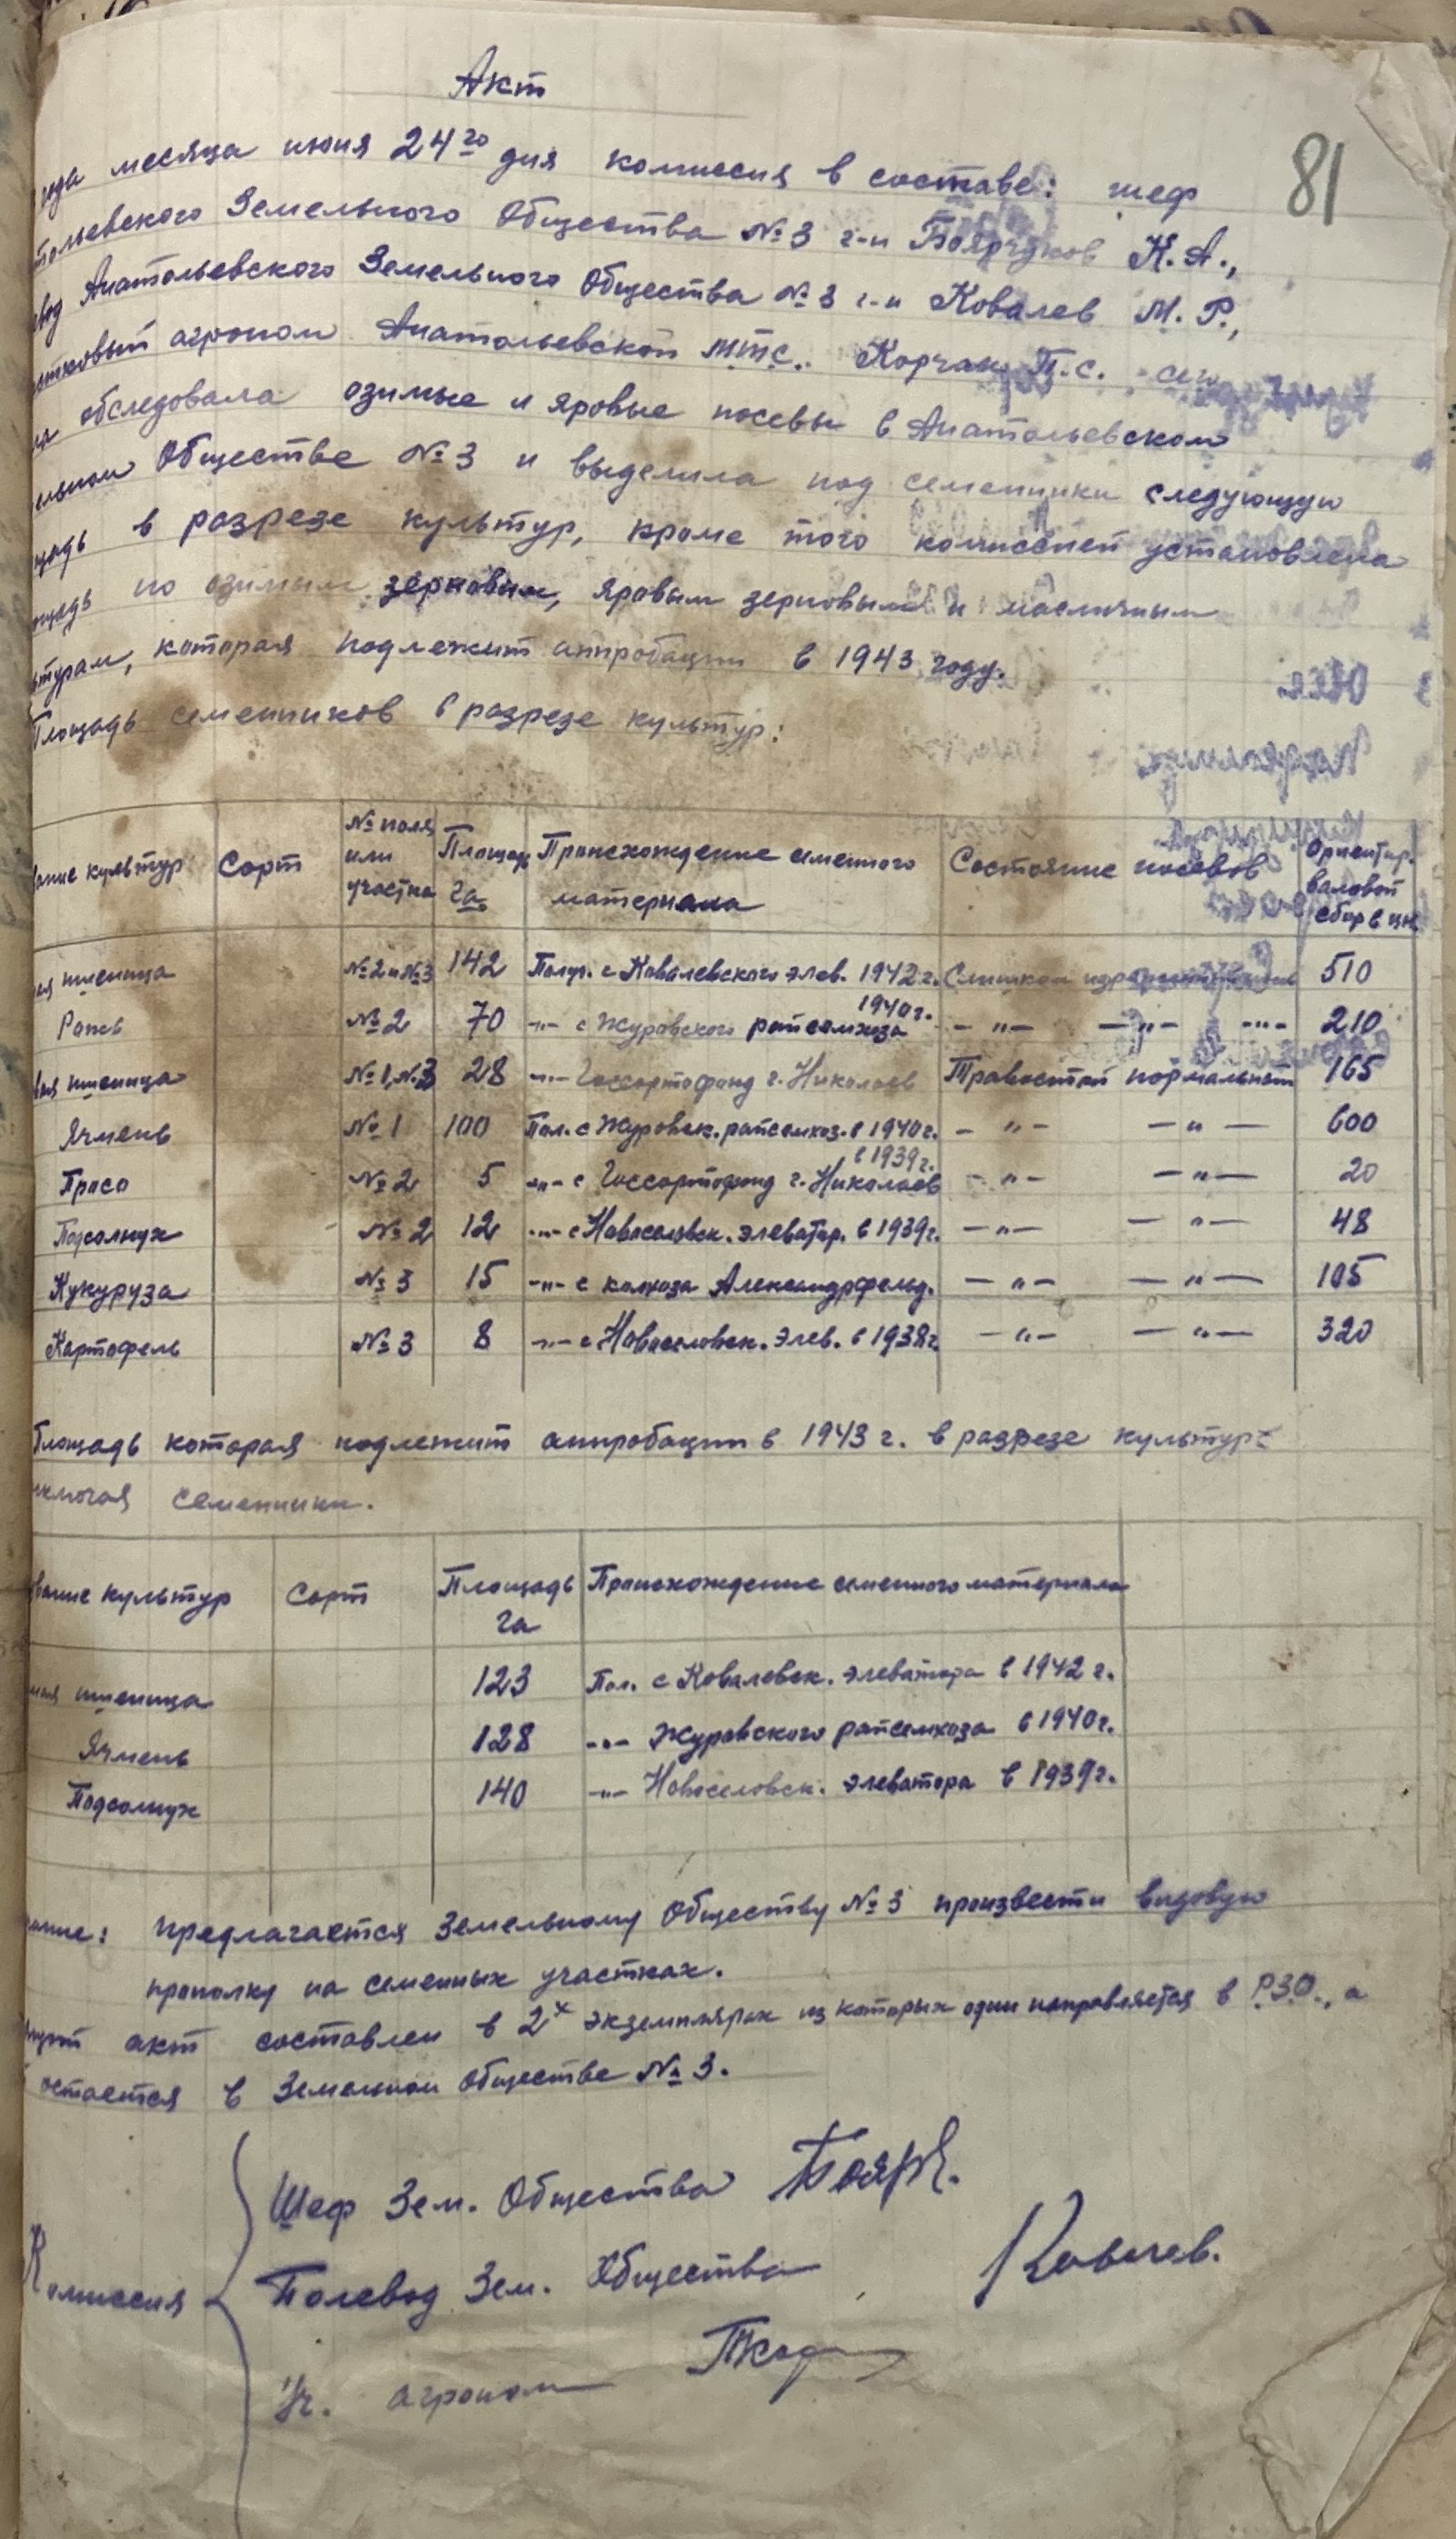 Акт
81
года месяца июня 24го дня комиссия в составе: шеф
тольевского Земельного Общества №3 г-н К. А.,
вод Анатольевского Земельного Общества №3 г-н Ковалев М. Р.,
стковый агроном Анатольевской М.Т.С. Корчак П.С. сего
обследовала озимые и яровые посевы в Анатольевском
ельном Обществе №3 и выделила под семенники следующую
щадь в разрезе культур, кроме того комиссией установлена
ощадь по озимым зерновым, яровым зерновым и масличным
ьтурам, которая подлежит аппробации в 1943 году.
Площадь семенников в разрезе культур:
вание культур Сорт № поля или участка Площадь га Происхождение семенного материала Состояние посевов Ориентир. валовой сбор в цн.
ая пшеница №2 и №3 142 Получ. с Ковалевского элев. 1942 г. Слишком 510
Рожь №2 70 -"- с Журовского райсемхоза 1940 г. -"- -"- -"- 210
вая пшеница №1, №3 28 -"- Госсортофонд г. Николаев Травостой нормальный 165
Ячмень №1 100 Пол. с Журовск. райсемхоз. в 1940 г. -"- -"- 600
Просо №2 5 -"- с Госсортофонд г. Николаев в 1939 г. -"- -"- 20
Подсолнух №2 12 -"- с Новоселовск. элеватор. в 1939 г. -"- -"- 48
Кукуруза №3 15 -"- с колхоза Александрфельд. -"- -"- 105
Картофель №3 8 -"- с Новоселовск. элев. в 1938 г. -"- -"- 320
Площадь которая подлежит аппробации в 1943 г. в разрезе культур
включая семенники.
вание культур Сорт Площадь га Происхождение семенного материала
мая пшеница 123 Пол. с Ковалевск. элеватора в 1942 г.
Ячмень 128 -"- Журовского райсемхоза в 1940 г.
Подсолнух 140 -"- Новоселовск. элеватора в 1939 г.
чание: предлагается Земельному Обществу №3 произвести видовую
прополку на семенных участках.
акт составлен в 2х экземплярах из которых один направляется в Р.З.О., а
остается в Земельном обществе №3.
Комиссия
Шеф Зем. Общества
Полевод Зем. Общества Ковалев.
Уч. агроном